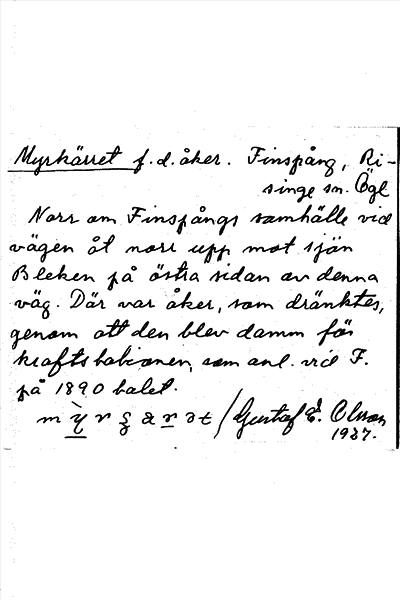 Myrkärret f.d. åker. Finspång, Ri-
singe sn. Ögl
Norr om Finspångs samhälle vid
vägen åt norr upp mot sjön
Bleken på östra sidan av denna
väg. Där var åker, som dränktes,
genom att den blev damm för
kraftstationen, som anl. vid F.
på 1890 talet.
Gustaf E. Olsson
1937.